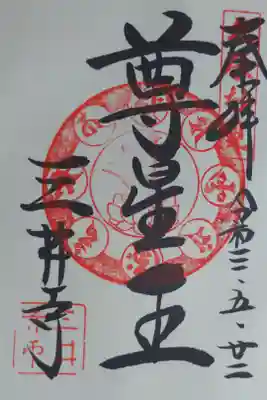 奉拝
令和三・五・廿二
尊星王
三井寺